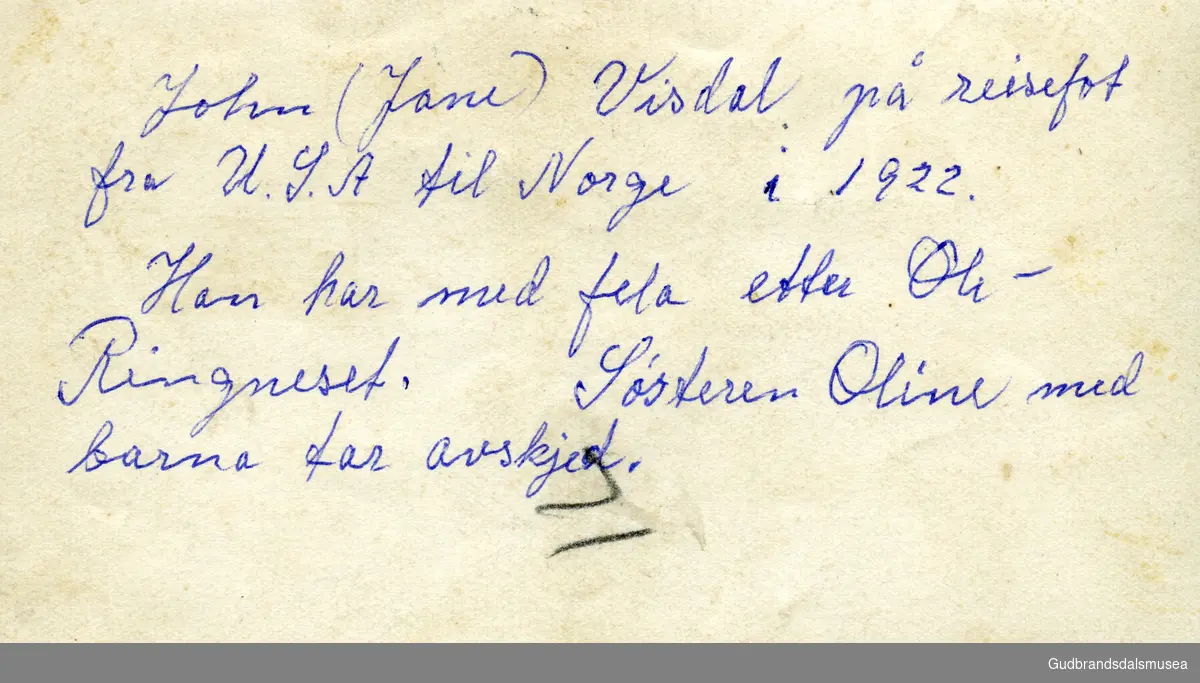 John (Jane) Visdal på reisefot
fra U.S.A til Norge i 1922.
Han har med fela etter Ole -
Ringneset. Søsteren Oline med
barna tar avskjed.
Gudbrandsdalsmusea